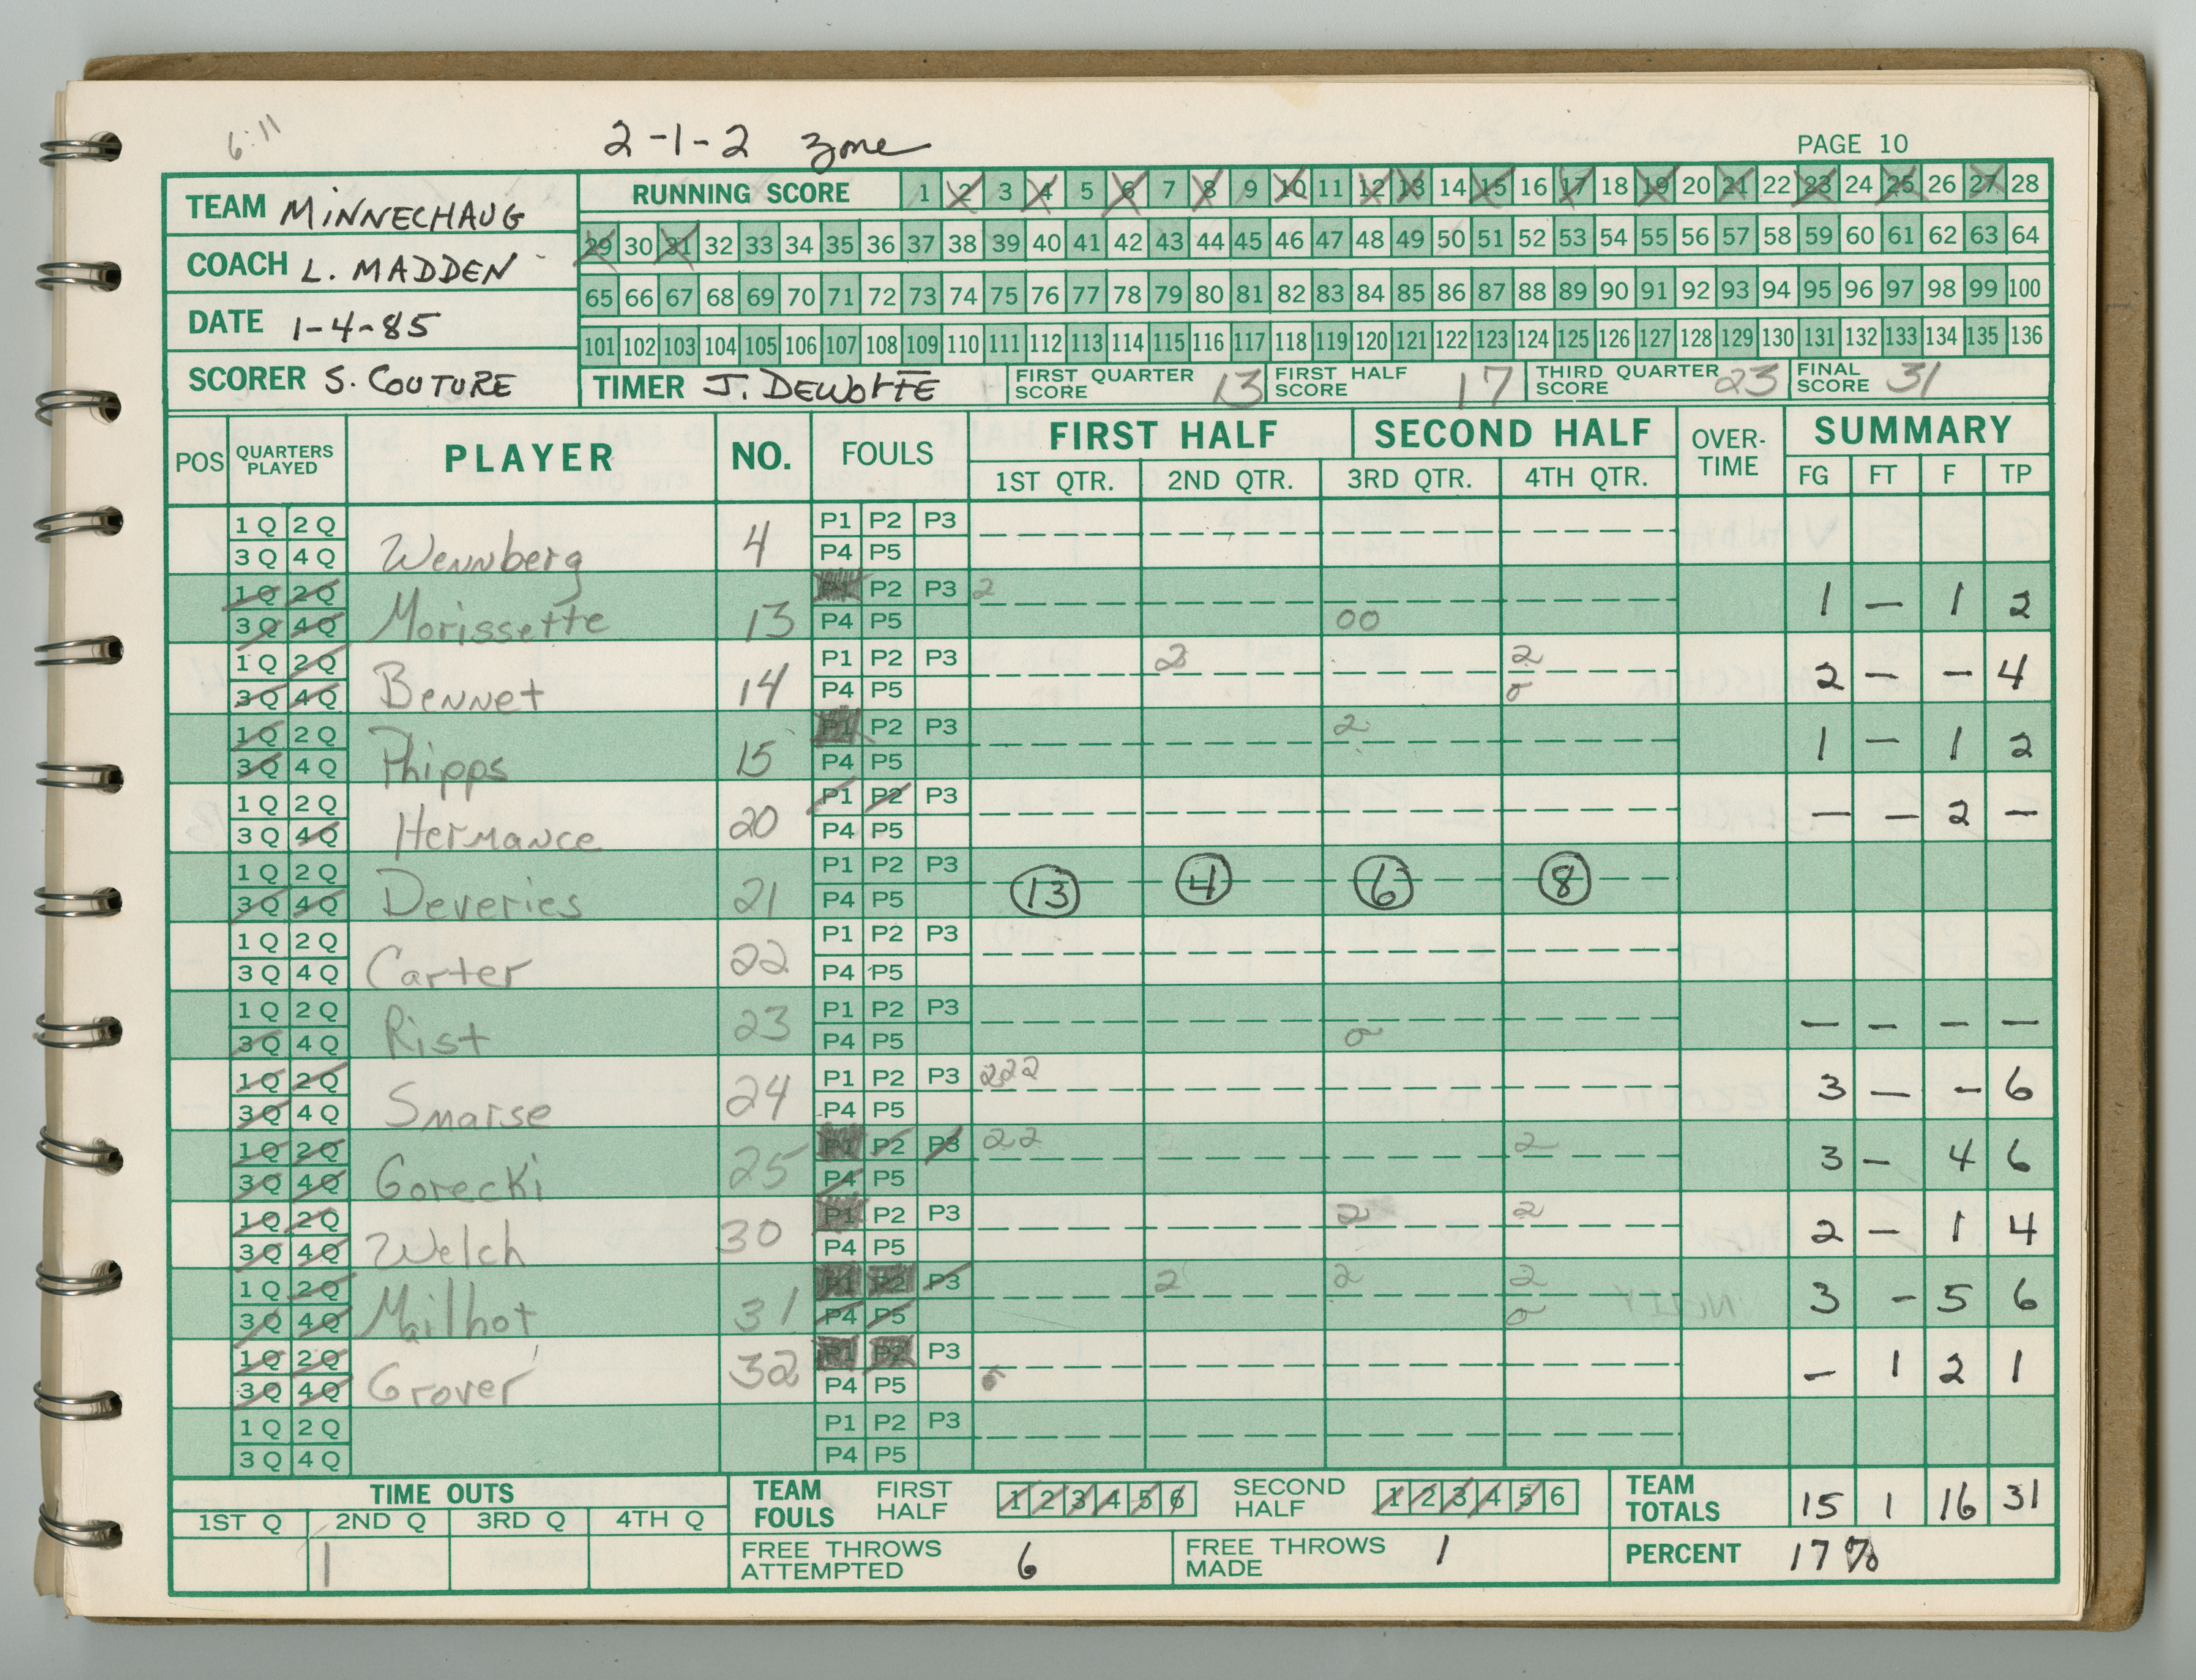 6:11 2-1-2 zone PAGE 10
TEAM MINNECHAUG
COACH L. MADDEN
DATE 1-4-85
SCORER S. COUTURE
RUNNING SCORE 1 2 3 4 5 6 7 8 9 10 11 12 13 14 15 16 17 18 19 20 21 22 23 24 25 26 27 28
29 30 31 32 33 34 35 36 37 38 39 40 41 42 43 44 45 46 47 48 49 50 51 52 53 54 55 56 57 58 59 60 61 62 63 64
65 66 67 68 69 70 71 72 73 74 75 76 77 78 79 80 81 82 83 84 85 86 87 88 89 90 91 92 93 94 95 96 97 98 99 100
101 102 103 104 105 106 107 108 109 110 111 112 113 114 115 116 117 118 119 120 121 122 123 124 125 126 127 128 129 130 131 132 133 134 135 136
TIMER J. DEWOLFE FIRST QUARTER SCORE 13 FIRST HALF SCORE 17 THIRD QUARTER SCORE 23 FINAL SCORE 31
POS QUARTERS PLAYED PLAYER NO. FOULS FIRST HALF SECOND HALF OVER-TIME SUMMARY
1ST QTR. 2ND QTR. 3RD QTR. 4TH QTR. FG FT F TP
1 Q 2 Q P1 P2 P3
3 Q 4 Q Wennberg 4 P4 P5
1 Q 2 Q P1 P2 P3 2
3 Q 4 Q Morissette 13 P4 P5 00 1 – 1 2
1 Q 2 Q P1 P2 P3 2 2
3 Q 4 Q Bennet 14 P4 P5 o 2 – – 4
1 Q 2 Q P1 P2 P3 2
3 Q 4 Q Phipps 15 P4 P5 1 – 1 2
1 Q 2 Q P1 P2 P3
3 Q 4 Q Hermance 20 P4 P5 – – 2 –
1 Q 2 Q P1 P2 P3
3 Q 4 Q Deveries 21 P4 P5 13 4 6 8
1 Q 2 Q P1 P2 P3
3 Q 4 Q Carter 22 P4 P5
1 Q 2 Q P1 P2 P3
3 Q 4 Q Rist 23 P4 P5 o – – – –
1 Q 2 Q P1 P2 P3 222
3 Q 4 Q Smarse 24 P4 P5 3 – – 6
1 Q 2 Q P1 P2 P3 22 2
3 Q 4 Q Gorecki 25 P4 P5 3 – 4 6
1 Q 2 Q P1 P2 P3 2 2
3 Q 4 Q Welch 30 P4 P5 2 – 1 4
1 Q 2 Q P1 P2 P3 2 2 2
3 Q 4 Q Mailhot 31 P4 P5 o 3 – 5 6
1 Q 2 Q P1 P2 P3
3 Q 4 Q Grover 32 P4 P5 – 1 2 1
1 Q 2 Q P1 P2 P3
3 Q 4 Q P4 P5
TIME OUTS
1ST Q 2ND Q 3RD Q 4TH Q
1
TEAM FOULS FIRST HALF 1 2 3 4 5 6 SECOND HALF 1 2 3 4 5 6
TEAM TOTALS 15 1 16 31
FREE THROWS ATTEMPTED 6 FREE THROWS MADE 1 PERCENT 17%